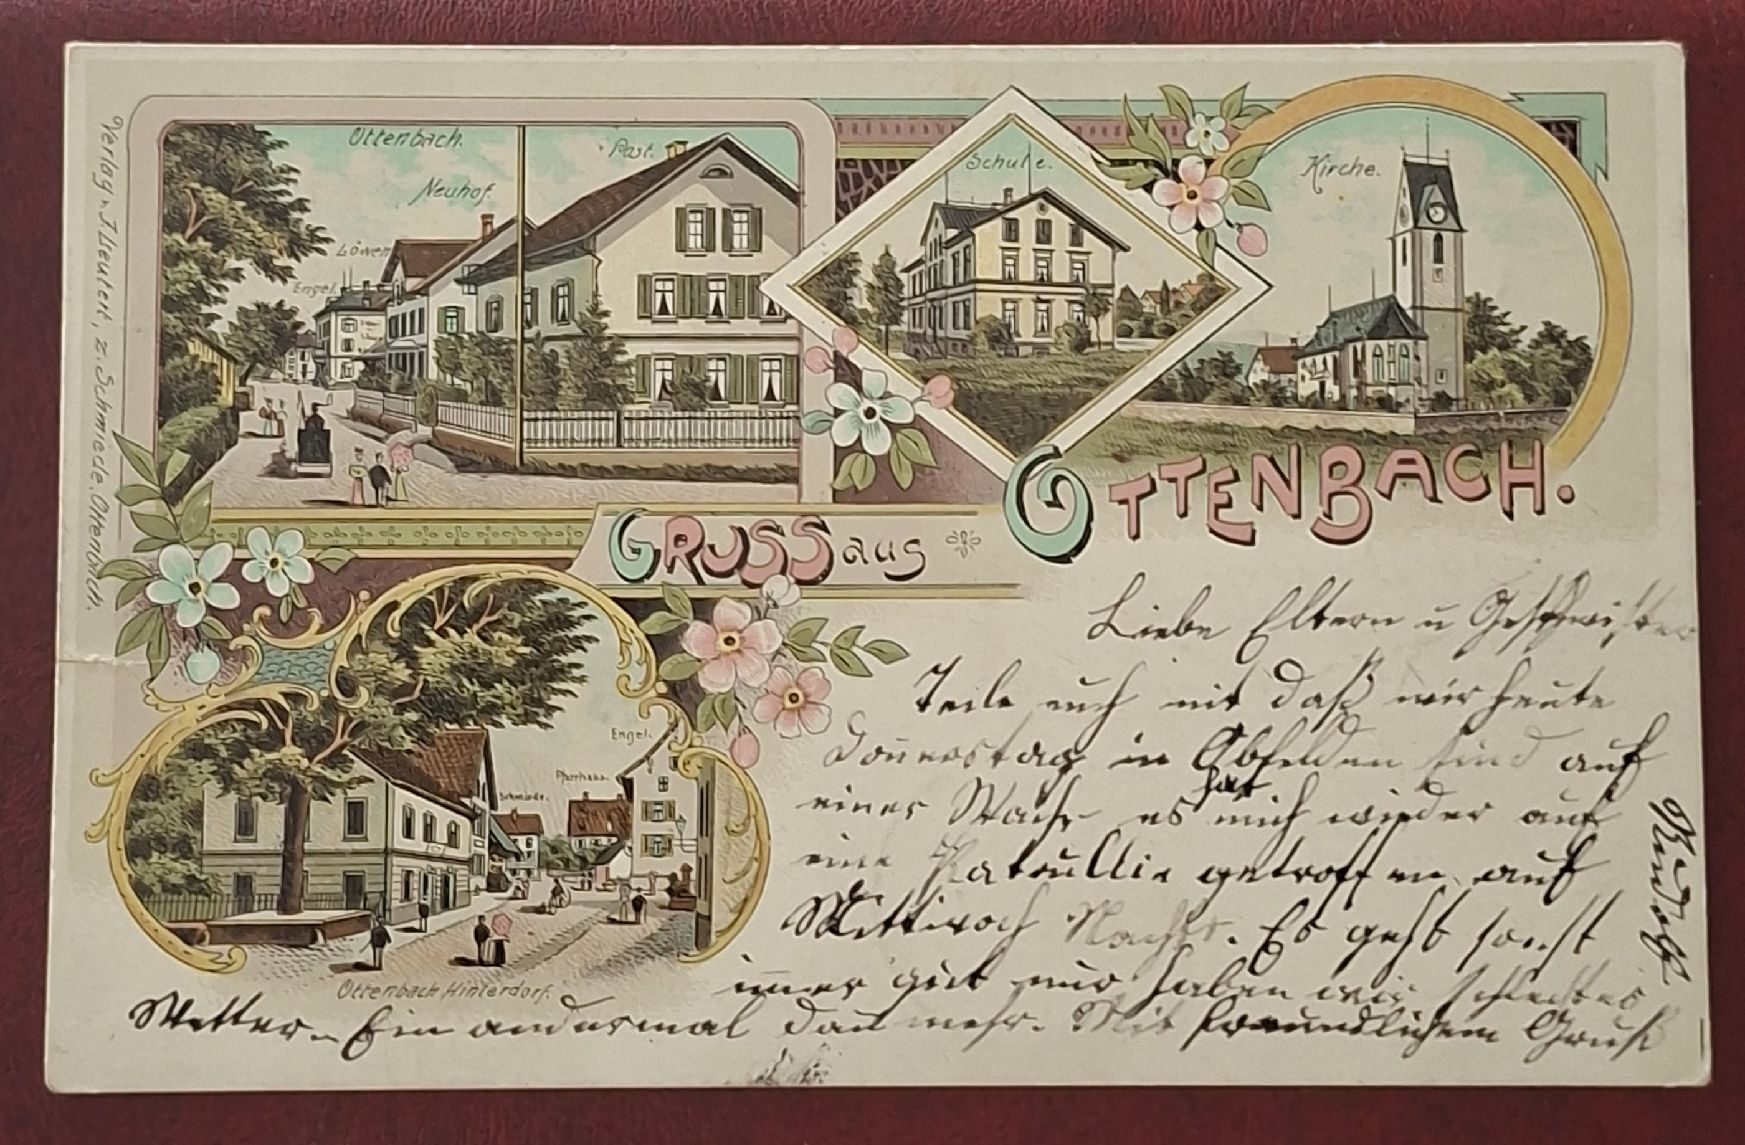 Verlag v. J. Leutert, z. Schmiede, Ottenbach.
Ottenbach.
Post.
Neuhof.
Löwen
Engel.
Schule.
Kirche.
GRUSS aus OTTENBACH.
Engel.
Pfarrhaus.
Schmiede.
Ottenbach Hinterdorf.
Liebe Eltern u Geschwister
Teile euch mit daß wir heute
Donnerstag in Obfelden sind auf
einer Wache es hat mich wieder auf
eine Patrullie getroffen auf
Mittwoch Nachts. Es geht sonst
immer gut nur haben wir schlechtes
Wetter. Ein andermal dan mehr. Mit freundlichem Gruß